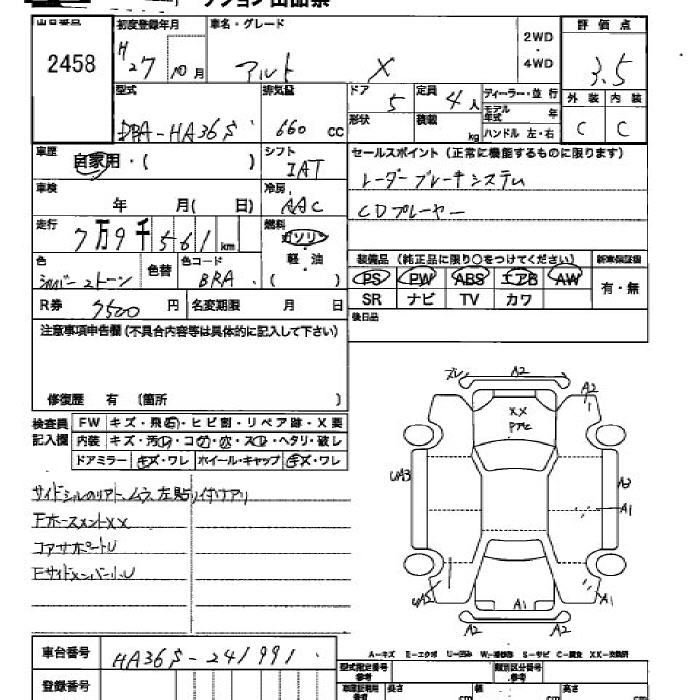 出品票
出品番号 初度登録年月 車名・グレード 2WD ・ 4WD 評価点
2458 H27 10月 アルト X 3.5
型式 排気量 ドア 5 定員 4人 ディーラー・並行 外装 内装
DBA-HA36S 660 CC 形状 積載 kg モデル年式 年 ハンドル 左・右 C C
車歴 自家用・( ) シフト IAT セールスポイント(正常に機能するものに限ります)
車検 年 月( 日) 冷房 AAC レーダーブレーキシステム
CDプレーヤー
走行 7万9千561km 燃料 ガソリン 軽・油 ( )
装備品(純正品に限り○をつけてください) 新車保証書
色 シルバー2トーン 色替 色コード BRA PS PW ABS エアB AW 有・無
R券 7500円 名変期限 月 日 SR ナビ TV カワ
注意事項申告欄(不具合内容等は具体的に記入して下さい) 後日品
修復歴 有 (箇所 )
検査員記入欄 FW キズ・飛石・ヒビ割・リペア跡・X要
内装 キズ・汚れ・コゲ・穴・スレ・ヘタリ・破レ
ドアミラー キズ・ワレ ホイール・キャップ キズ・ワレ
ズレ A2
A2
XX
Pアヒ
UA3 A2
A1
UA2 A1 A1
A2 A2
サイドシルのリアト、ムラ、左貼り付けアリ
FホースメントXX
コアサポートU
FサイドメンバールU
A-キズ E-エクボ U-凹み W-補修跡 S-サビ C-腐食 XX-交換済
車台番号 HA36S-241991 型式指定番号 参考 類別区分番号 参考
登録番号 車庫証明用 参考 長さ cm 幅 cm 高 cm